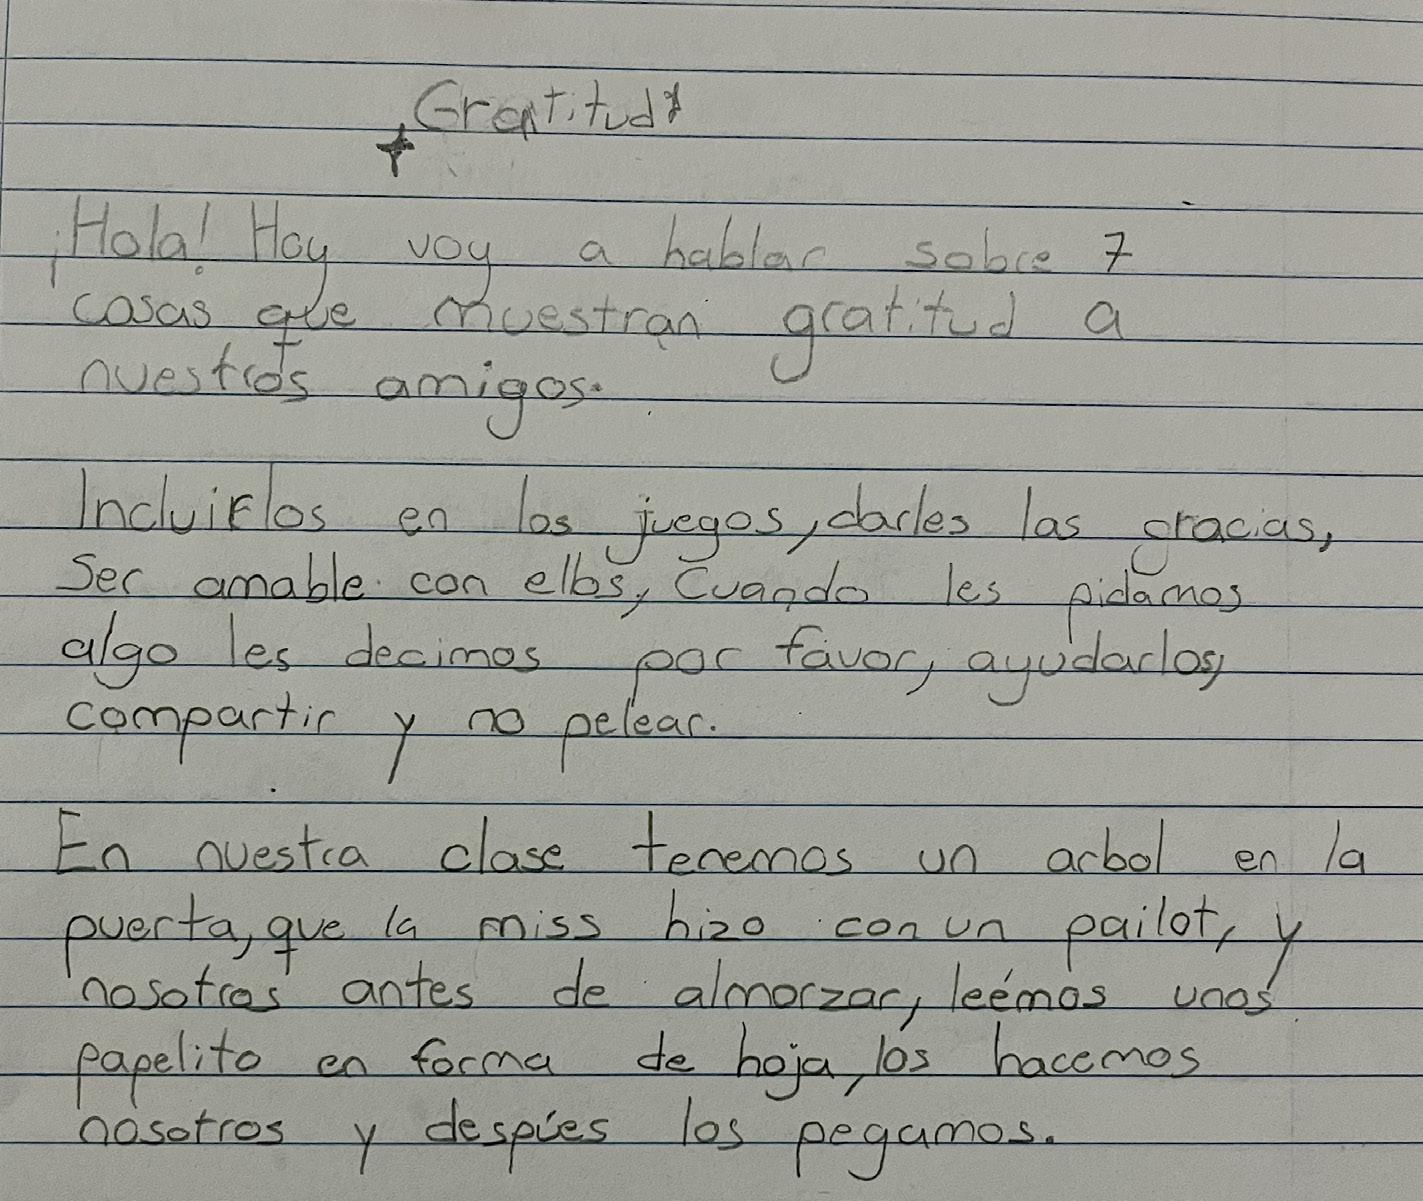 Gratitud
¡Hola! Hoy voy a hablar sobre 7
cosas que muestran gratitud a
nuestros amigos.
Incluirlos en los juegos, darles las gracias,
Ser amable con ellos, Cuando les pidamos
algo les decimos por favor, ayudarlos,
compartir y no pelear.
En nuestra clase tenemos un arbol en la
puerta, que la miss hizo con un pailot, y
nosotros antes de almorzar, leémos unos
papelito en forma de hoja, los hacemos
nosotros y despúes los pegamos.